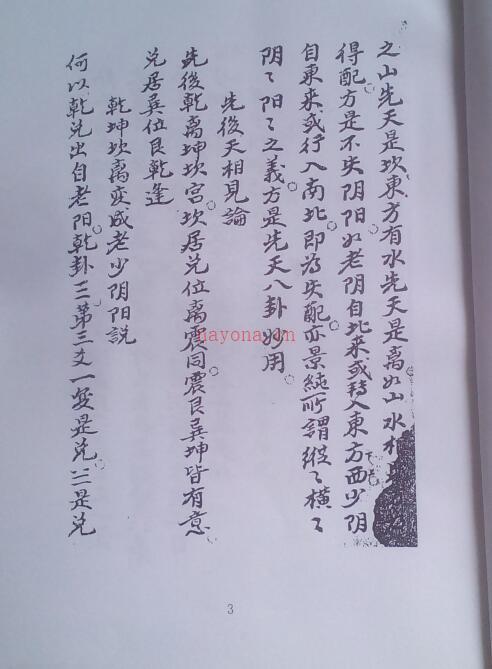 之山先天是坎東方有水先天是離如山水相
得配方是不失阴阳如老阴自北来或转入東方西少阴
自東来或行入南北即為失配亦景純所謂縱々横々
阴々阳々之義方是先天八卦妙用
先後天相見論
先後乾離坤坎宫坎居兑位离震同震艮巽坤皆有意
兑居巽位艮乾逢
乾坤坎离变成老少阴阳説
何以乾兑出自老阳乾卦三第三爻一变是兑三是兑
nayona.cn
3